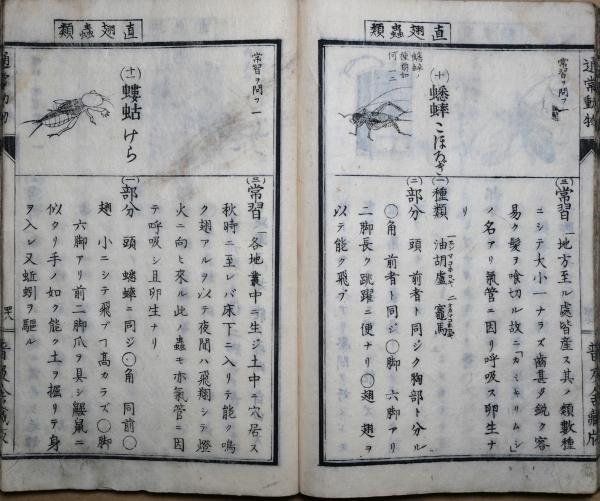 直翅蟲類
通常動物
常習ヲ問フ一
(十)蟋蟀こほろぎ
蟋蟀ノ種類如何一二
(三)常習 一地方至ル處皆産ス其ノ類數種
ニシテ大小一ナラズ齒甚ダ鋭ク容
易ク髪ヲ喰切ル故ニ「カミキリムシ」
ノ名アリ氣管ニ因リ呼吸ス卵生ナ
リ
(一)種類 油胡盧 竈馬
(二)部分 頭 前者ト同ジク胸部ト分ル
〇角 前者ト同ジ〇脚 六脚アリ
二脚長ク跳躍ニ便ナリ〇翅 翅ヲ
以テ能ク飛ブ
直翅蟲類
常習ヲ問フ一
(十一)螻蛄けら
(三)常習 一各地叢中ニ生ジ土中ニ穴居ス
秋時ニ至レバ床下ニ入リテ能ク鳴
ク翅アルヲ以テ夜間ハ飛翔シテ燈
火ニ向ヒ來ル此ノ蟲モ亦氣管ニ因
テ呼吸シ且卵生ナリ
(一)部分 頭 蟋蟀ニ同ジ〇角 同前〇
翅 小ニシテ飛ブヿ高カラズ〇脚
六脚アリ前二脚爪ヲ具シ鼹鼠ニ
似タリ手ノ如ク能ク土ヲ掘リテ身
ヲ入レ又蚯蚓ヲ驅ル
通常動物